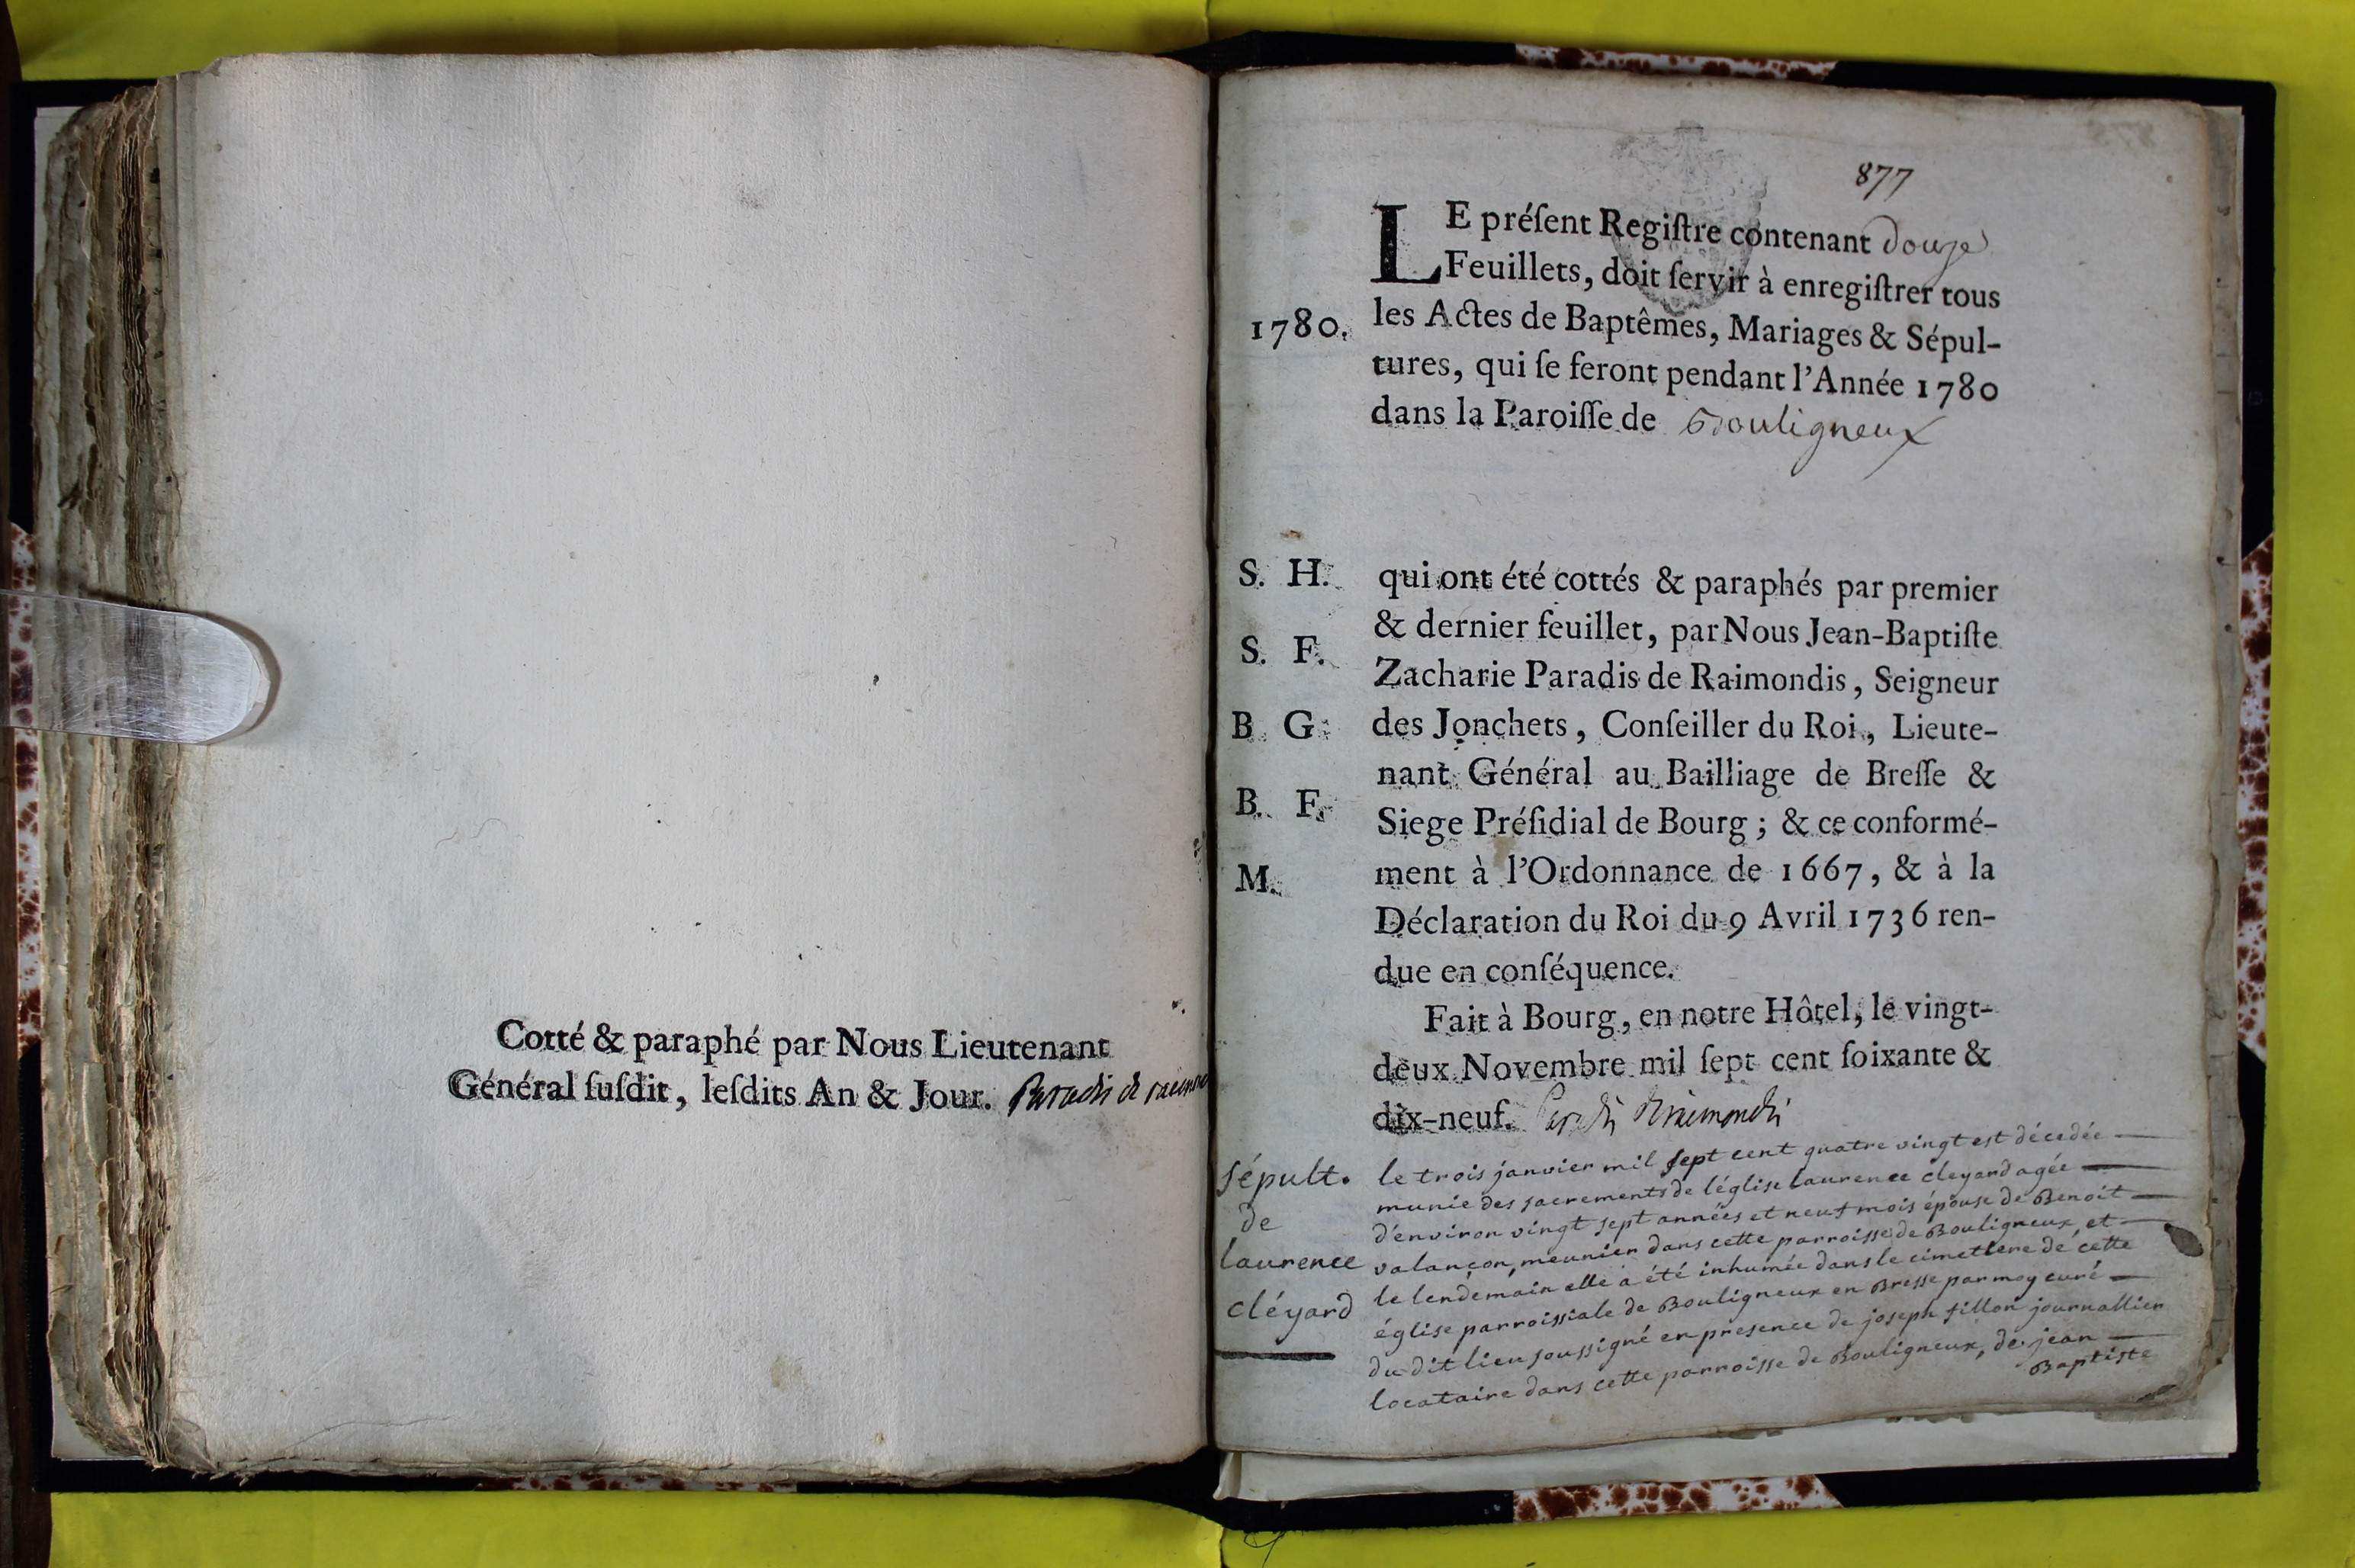 Cotté & paraphé par Nous Lieutenant
Général ſuſdit, leſdits An & Jour. Paradis de
877
LE préſent Regiſtre contenant douze
Feuillets, doit ſervir à enregiſtrer tous
1780. les Actes de Baptêmes, Mariages & Sépul-
tures, qui ſe feront pendant l'Année 1780
dans la Paroiſſe de Bouligneux
S. H.
S. F.
B. G.
B. F.
M.
qui ont été cottés & paraphés par premier
& dernier feuillet, par Nous Jean-Baptiſte
Zacharie Paradis de Raimondis, Seigneur
des Jonchets, Conſeiller du Roi, Lieute-
nant Général au Bailliage de Breſſe &
Siege Préſidial de Bourg; & ce conformé-
ment à l'Ordonnance de 1667, & à la
Déclaration du Roi du 9 Avril 1736 ren-
due en conſéquence.
Fait à Bourg, en notre Hôtel, le vingt-
deux Novembre mil ſept cent ſoixante &
dix-neuf. Paradis de Raimondis
sépult.
de
laurence
cléyard
le trois janvier mil sept cent quatre vingt est décedée
munie des sacrements de l'église laurence cleyard agée
d'environ vingt sept années et neuf mois épouse de Benoit
valançon, meunier dans cette parroisse de Bouligneux, et
le lendemain elle a été inhumée dans le cimetiere de cette
église parroissiale de Bouligneux en Bresse par moy curé
du dit lieu soussigné en presence de joseph fillon journallier
locataire dans cette parroisse de Bouligneux, de jean
Baptiste